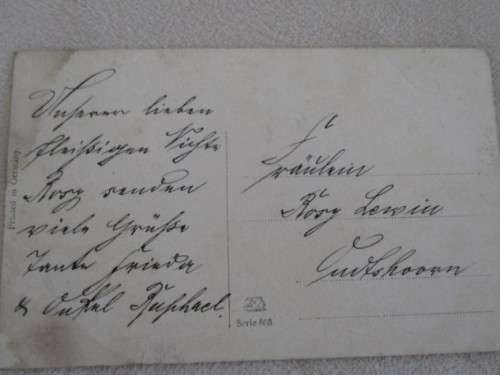 Unseren lieben
fleißigen Nichte
Rosy senden
viele Grüße
Tante Frieda
& Onkel Raphael.
Fräulein
Rosy Lewin
Oudtshoorn
Printed in Germany
Serie